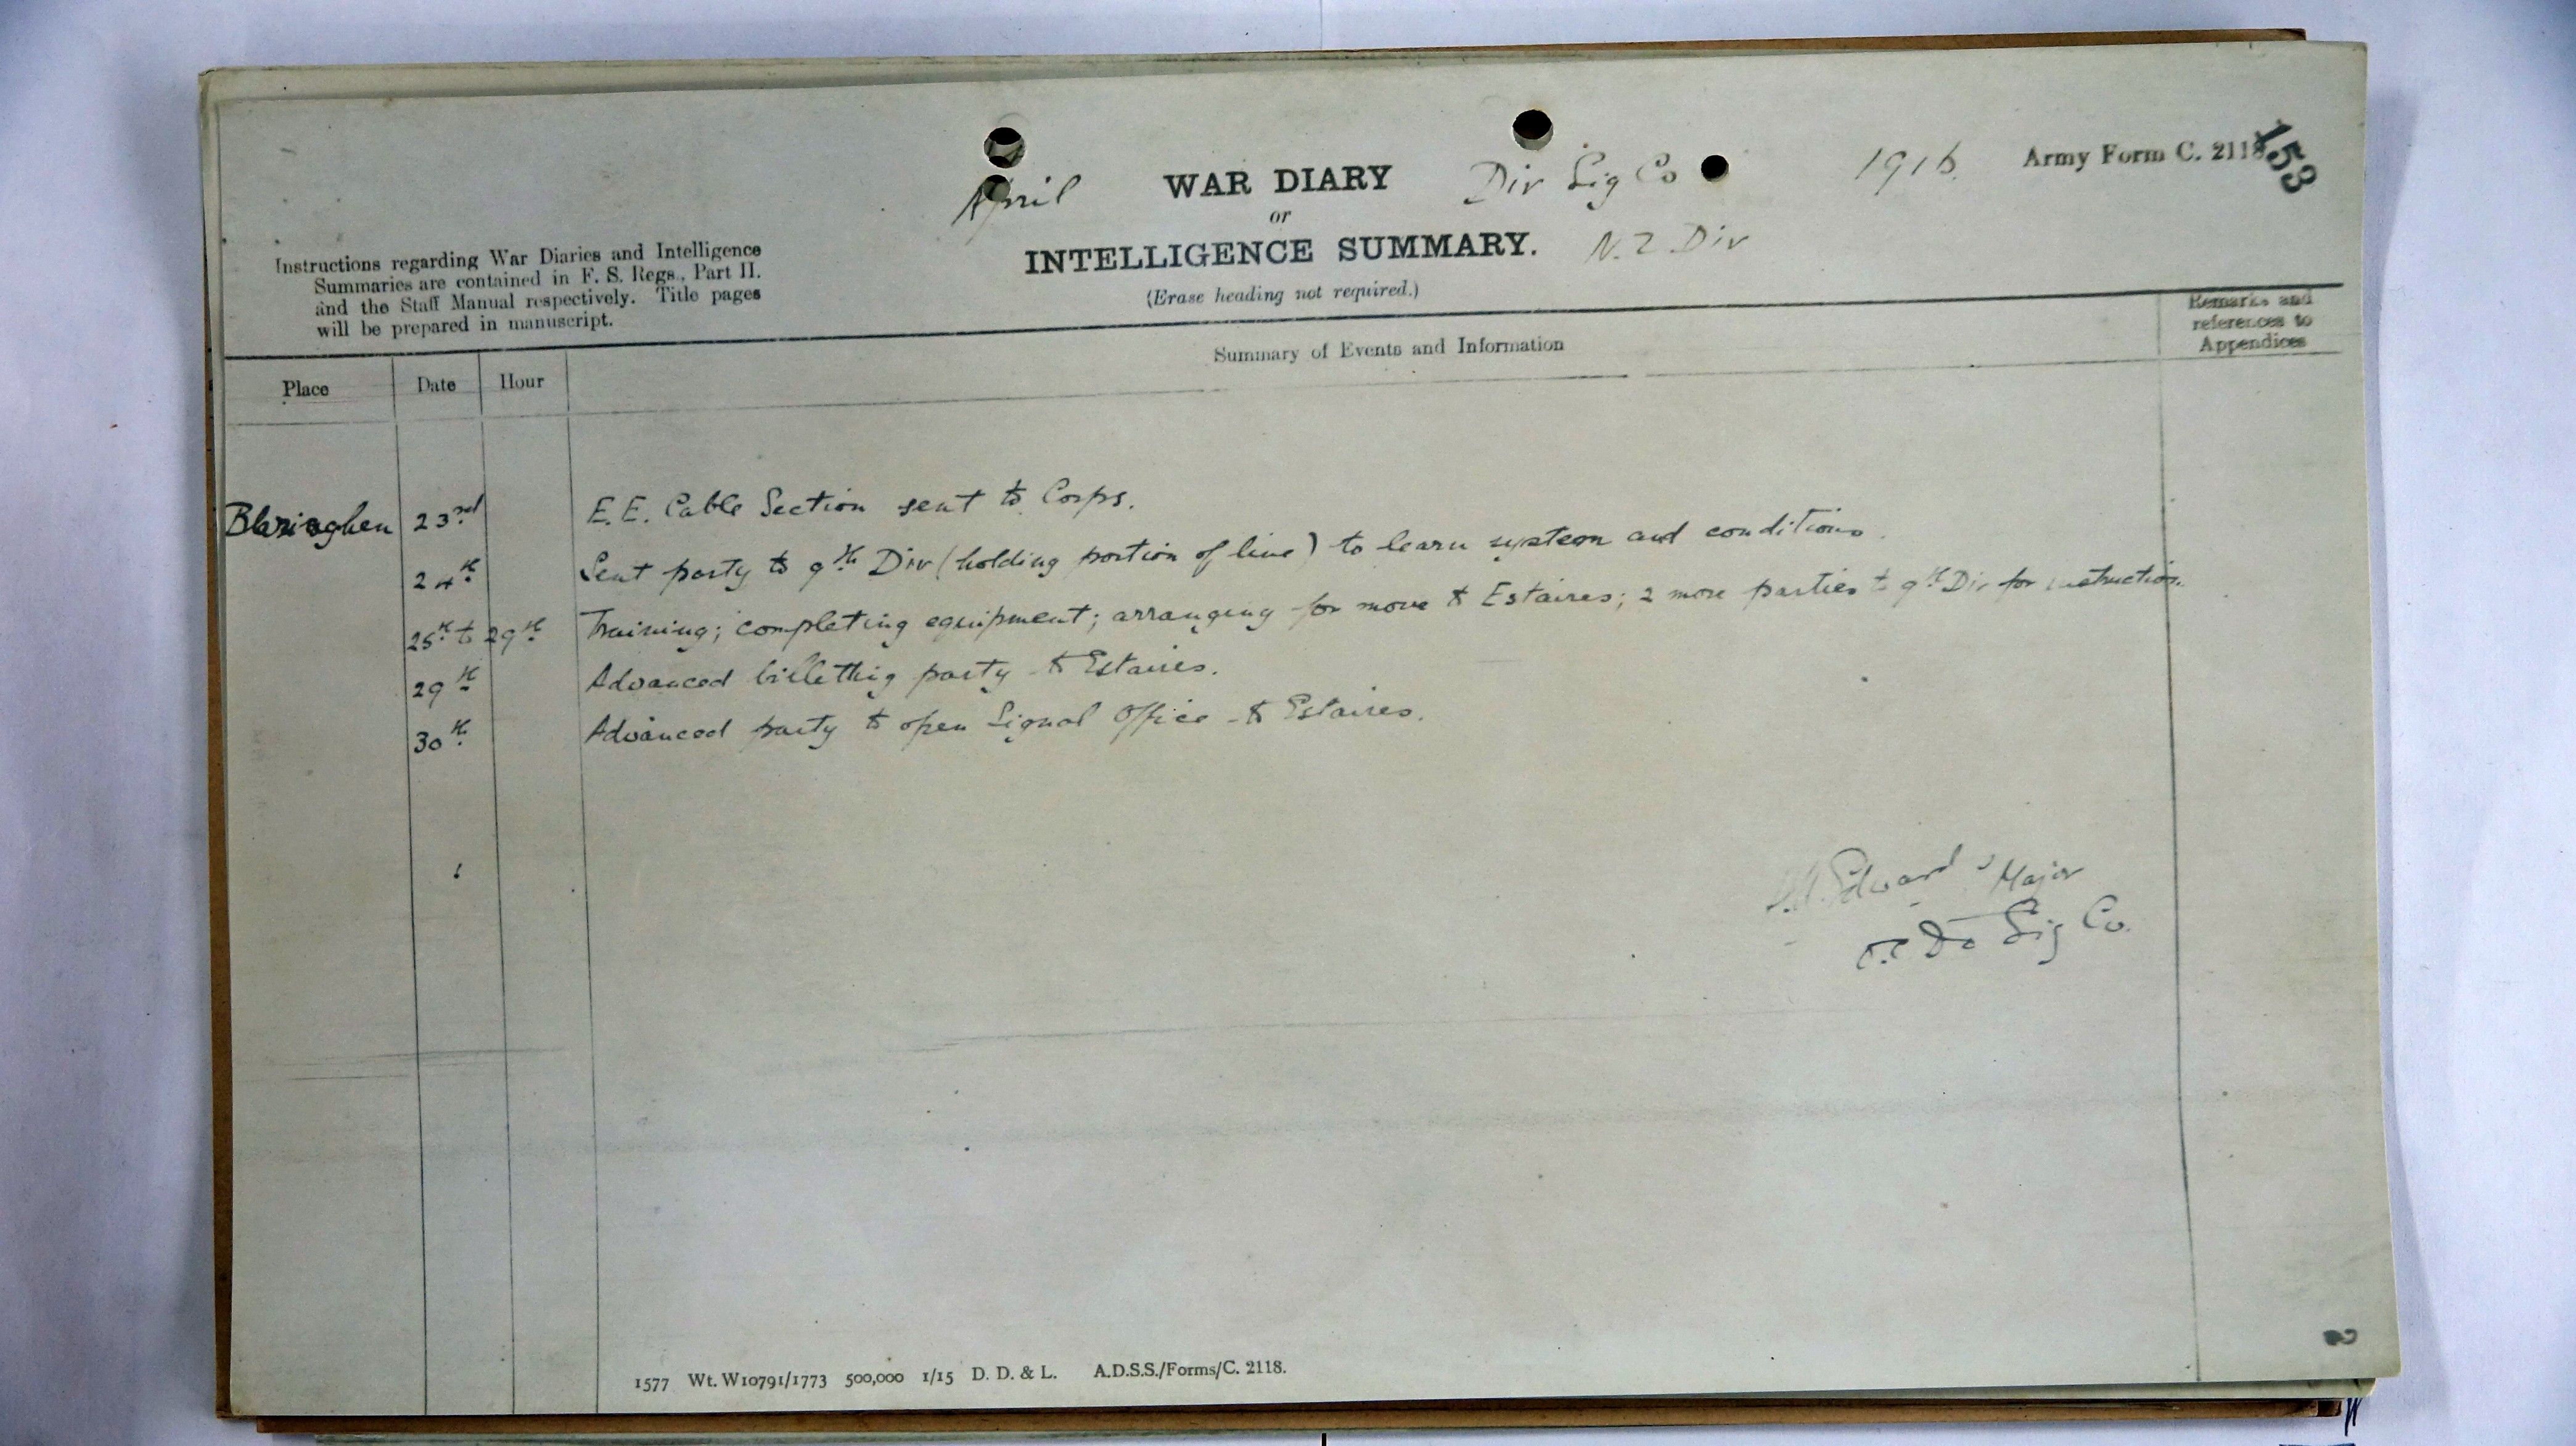 153
Army Form C. 2118
1916.
April WAR DIARY Div Sig Co
or
INTELLIGENCE SUMMARY. N.Z Div
(Erase heading not required.)
Instructions regarding War Diaries and Intelligence
Summaries are contained in F. S. Regs., Part II.
and the Staff Manual respectively. Title pages
will be prepared in manuscript.
Place Date Hour Summary of Events and Information Remarks and
references to
Appendices
Blaringhen 23rd E.E. Cable Section sent to Corps.
24th Sent party to 9th Div (holding portion of line) to learn system and conditions.
25th to 29th Training; completing equipment; arranging for move to Estaires; 2 more parties to 9th Div for instruction.
29th Advanced billetting party to Estaires.
30th Advanced party to open Signal Office to Estaires.
Major
Sig Co.
1577 Wt. W10791/1773 500,000 1/15 D. D. & L. A.D.S.S./Forms/C. 2118.